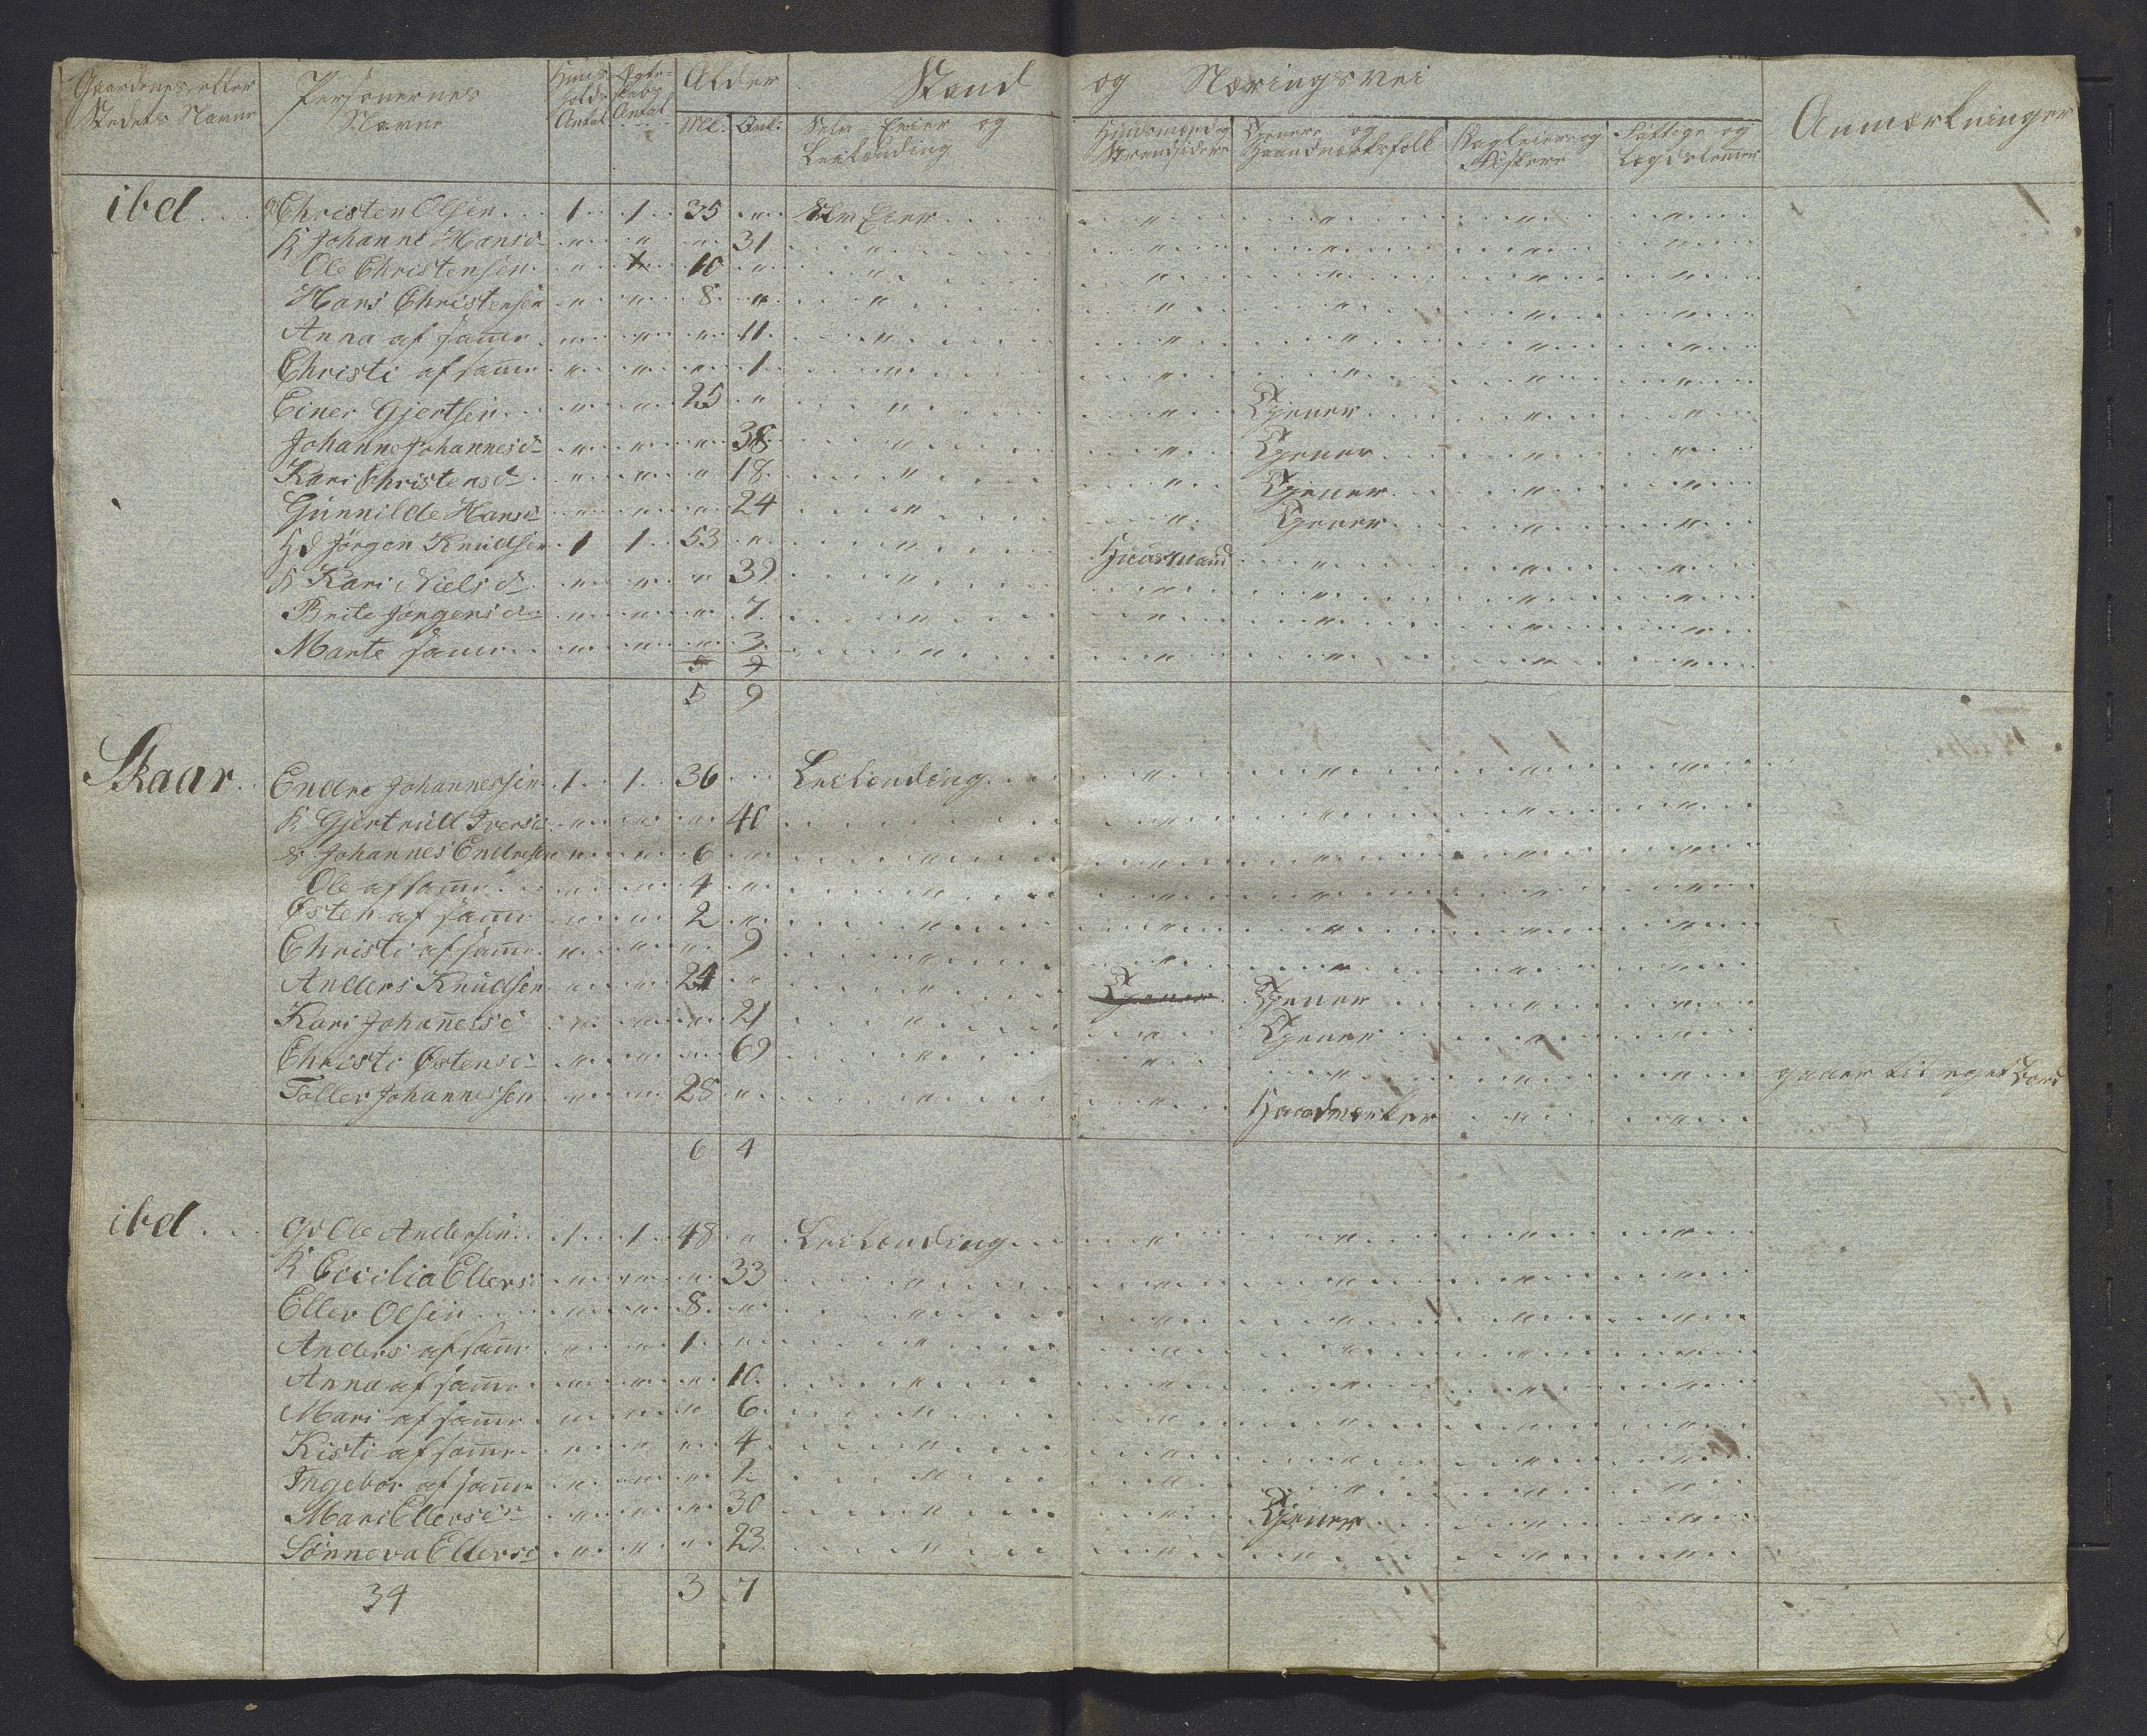 Gaardenes eller Stedets Navne | Personernes Navne | Huus holds Antal | Egte= skabs Antal | Alder | Stand og Næringsvei | Anmærkninger
Ml: | Qvi: | Selv Eier og Leilænding | Huusmænd og Strandsidere | Tjenere og Haandværksfolk | Bagleiere og Fiskere | Fattige og Lægdslemer
ibd... | G Christen Olsen... | 1 | 1 | 35 | " | Selv Eier | " | " | " | "
K Johanne Hansd | " | " | " | 31 | " | " | " | " | "
Ole Christensen | " | " | 10 | " | " | " | " | " | "
Hans Christensen | " | " | 8 | " | " | " | " | " | "
Anna af samme | " | " | " | 11 | " | " | " | " | "
Christi af samme | " | " | " | 1 | " | " | " | " | "
Einer Gjertsen | " | " | 25 | " | " | " | Tjener | " | "
Johanne Johannesd | " | " | " | 38 | " | " | Tjener | " | "
Kari Christensd | " | " | " | 18 | " | " | Tjener | " | "
Gunnilde Hansd | " | " | " | 24 | " | " | Tjener | " | "
Hd Jørgen Knudsen | 1 | 1 | 53 | " | " | Huusmand | " | " | "
K Kari Nielsd | " | " | " | 39 | " | " | " | " | "
Brite Jørgensd | " | " | " | 7 | " | " | " | " | "
Marte samme | " | " | " | 3 | " | " | " | " | "
5 | 9
5 | 9
Skaar | Endre Johannessen | 1 | 1 | 36 | | Leilending | " | " | " | "
K Gjertrud Iversd | " | " | " | 40 | | " | " | " | "
S Johannes Endresen | " | " | 6 | " | " | " | " | " | "
Ole af samme | " | " | 4 | " | " | " | " | " | "
Østen af samme | " | " | 2 | " | " | " | " | " | "
Christi af samme | " | " | " | 9 | " | " | " | " | "
Anders Knudsen | " | " | 24 | " | " | Tjener | Tjener | " | "
Kari Johanesd | " | " | " | 21 | " | " | Tjener | " | "
Christi Østensd | " | " | " | 69 | " | " | " | " | " | gaaer til eget
Toller Johannessen | " | " | 28 | " | " | " | Haandverker | " | "
6 | 4
ibd... | Gd Ole Andersen | 1 | 1 | 48 | " | Leilending | " | " | " | "
K Cicilia Ellers | " | " | " | 33 | " | " | " | " | "
Eller Olsen | " | " | 8 | " | " | " | " | " | "
Anders af samme | " | " | 1 | " | " | " | " | " | "
Anna af samme | " | " | " | 10 | " | " | " | " | "
Mari af samme | " | " | " | 6 | " | " | " | " | "
Kisti af samme | " | " | " | 4 | " | " | " | " | "
Ingebor af samme | " | " | " | 2 | " | " | " | " | "
Mari Ellersd | " | " | " | 30 | " | " | Tjener | " | "
Sønneva Ellersd | " | " | " | 23 | " | " | " | " | "
34 | 3 | 7